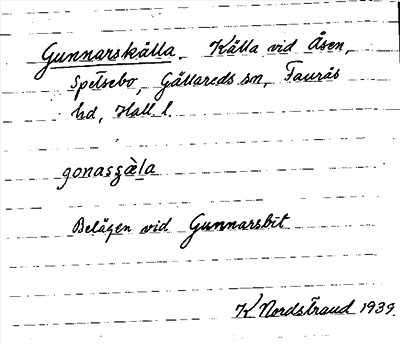 Gunnarskälla. Källa vid Åsen,
Spetsebo, Gällareds sn, Faurås
hd, Hall. l.
gonasʂàla
Belägen vid Gunnarsbit
K Nordstrand 1939.